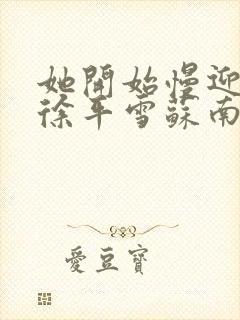 她開始慢迎
徐平雪蘇南
愛豆寶